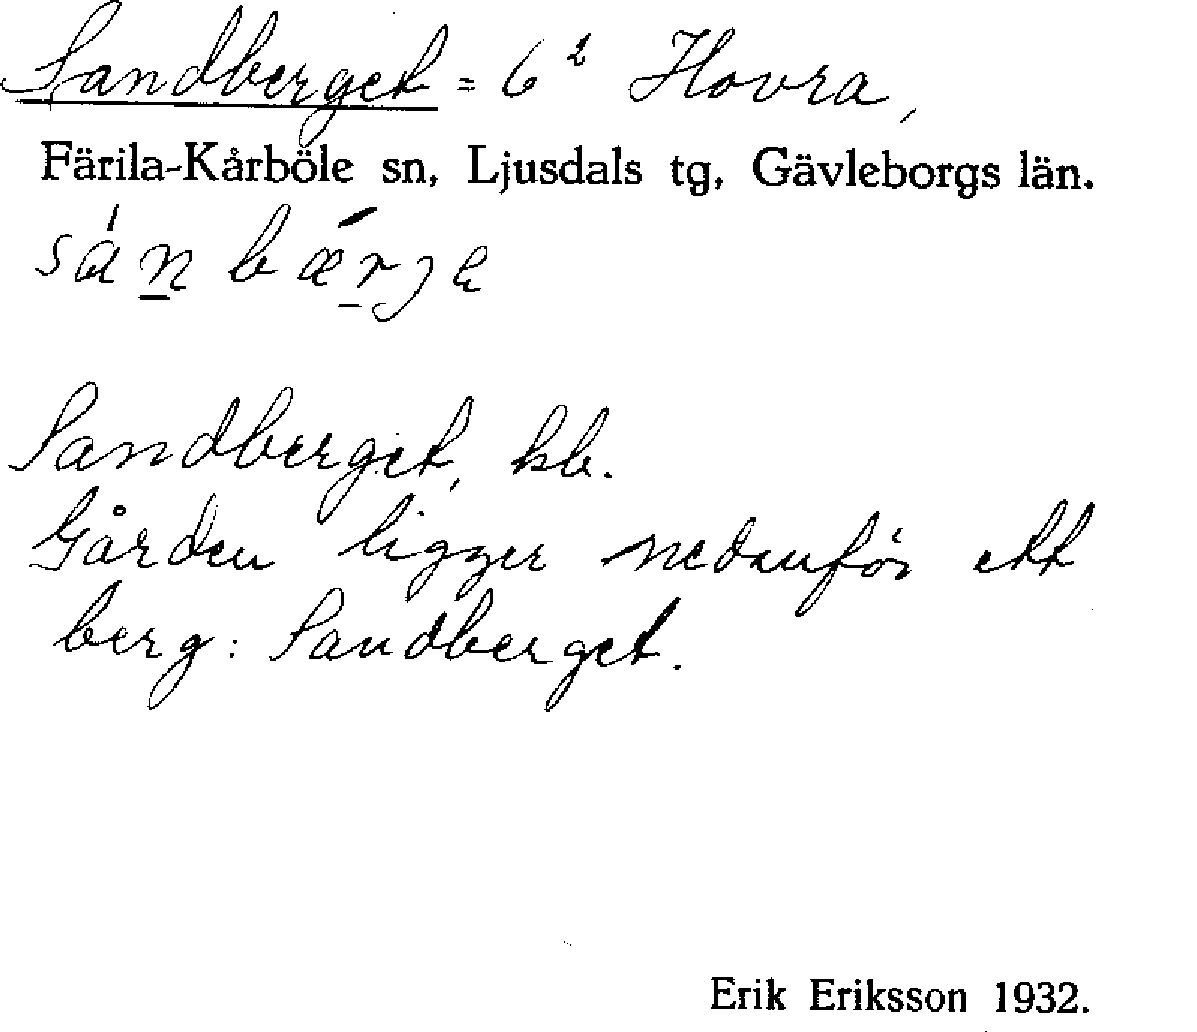 Sandberget = 6² Hovra,
Färila-Kårböle sn, Ljusdals tg, Gävleborgs län.
sán bǽrje
Sandberget, kb.
Gården ligger nedanför ett
berg: Sandberget.
Erik Eriksson 1932.